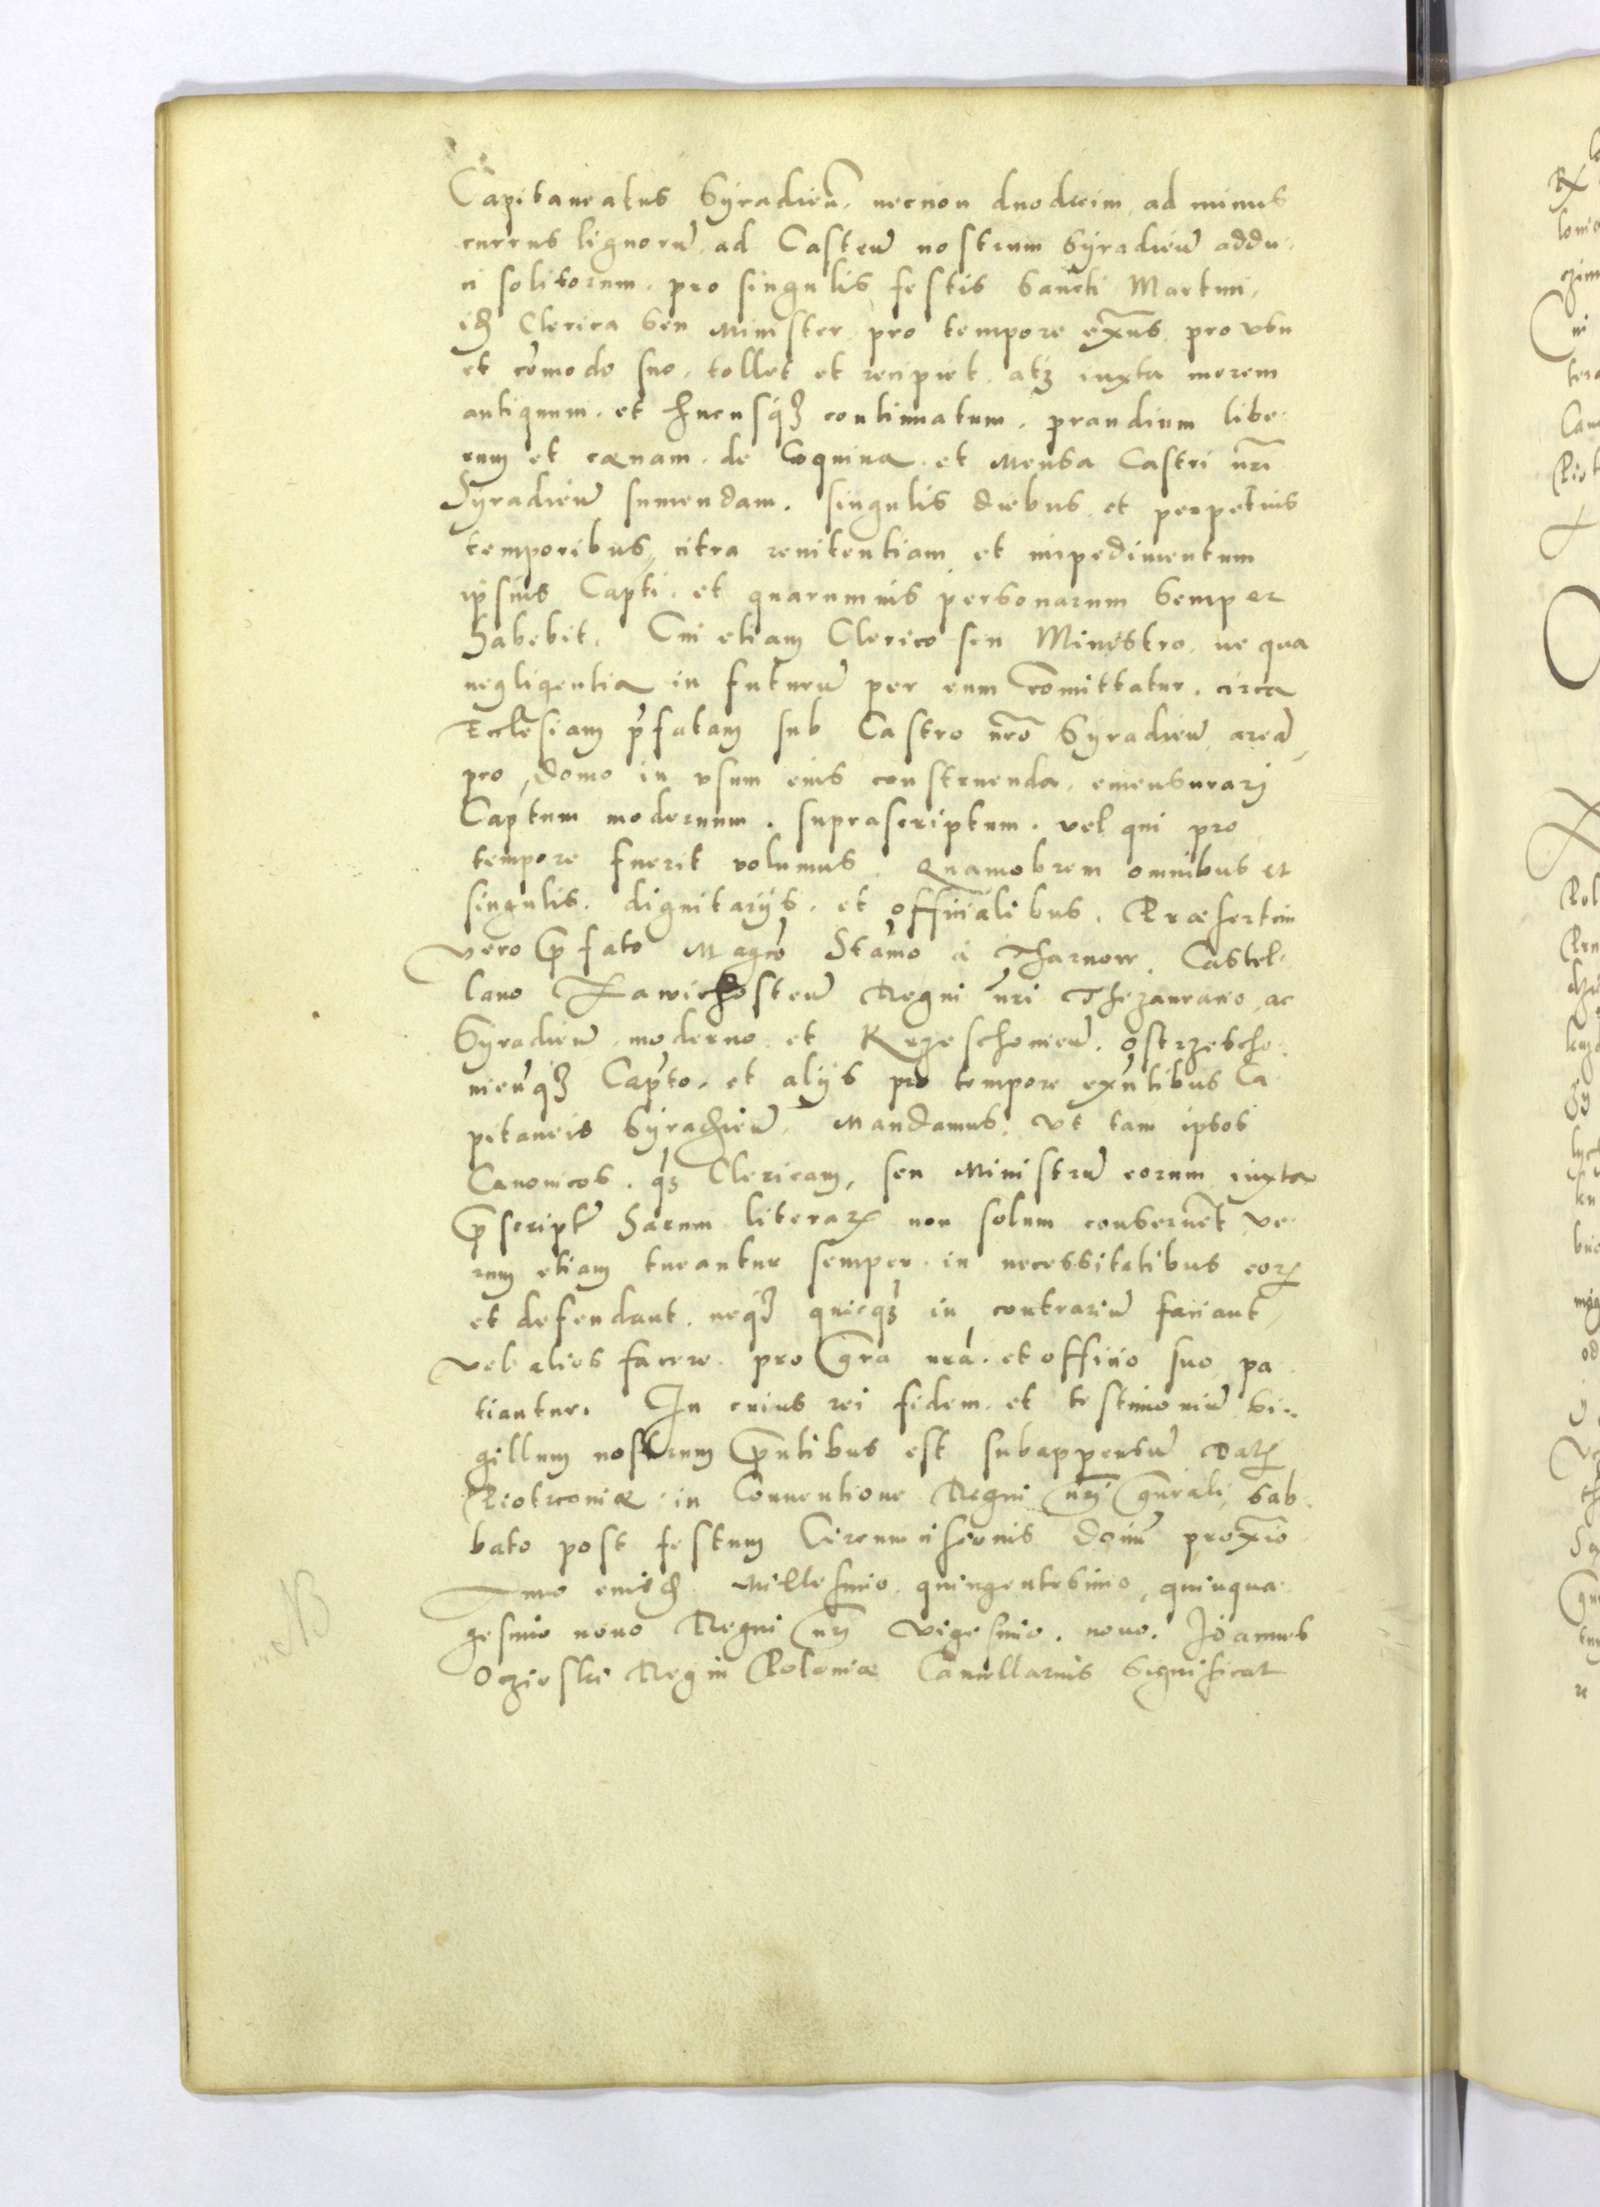 Capitaneatus Syradieñ. necnon duodecim, ad minus
currus lignorũ ad Castrũ nostrum Syradieñ addu-
ci solitorum, pro singulis festis Sancti Martini,
id Clerica seu Minister pro tempore exñs pro usu
et cõmodo suo, tollet et recipiet, atqȝ iuxta morem
antiquum, et hucusqȝ continuatum, prandium libe-
rum et cænam, de Coquina et Mensa Castri nr̃i
Syradieñ sumendam. singulis diebus et perpetuis
temporibus citra renitentiam et impedimentum
ipsius Capti. et quarumvis personarum semper
habebit. Cui etiam Clerico seu Ministro, ne qua
negligentia in futurũ per eum cõmittatur, circa
Ecclesiam p̃fatam sub Castro nr̃o Syradieñ areã
pro domo in usum eius construenda, emensurari
Captum modernum, suprascriptum, vel qui pro
tempore fuerit volumus. Quamobrem omnibus et
singulis, dignitarijs, et officialibus, Præsertim
vero p̃fato Magco Stãmo à Tharnow, Castel-
lano Zawichosteñ Regni nr̃i Thezaurario, ac
Syradieñ moderno et Krzeschonieñ. Ostrzescho-
nieñqȝ Capto, et alijs pro tempore exñtibus Ca-
pitaneis Syradieñ Mandamus, Vt tam ipsos
Canonicos, qȝ Clericam, seu Ministrũ eorum, iuxta
p̃scriptũ harum literarȝ non solum conservent ve-
rum etiam tueantur semper, in necessitatibus eorȝ
et defendant, neqȝ quicqȝ in contrariũ faciant,
vel alios facere, pro gra nr̃a, et officio suo pa-
tiantur. In cuius rei fidem et testimoniũ si-
gillum nostrum p̃ntibus est subappensũ Datȝ
Piotrcoviæ in Conventione Regni nr̃i gñrali, sab-
bato post festum Circumcisionis Domĩ proxĩo
Anno eiusd. Millesimo quingentesimo quinqua-
gesimo nono Regni nr̃i Vigesimo, nono. Joannes
Oczieski Regni Poloniæ Cancellarius significat
NB